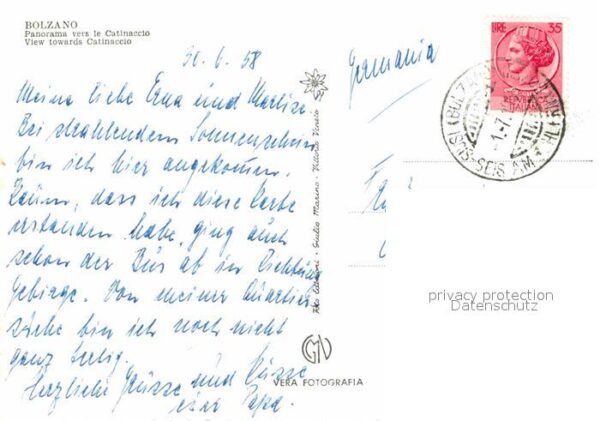 BOLZANO
Panorama vers le Catinaccio
View towards Catinaccio
30.6.58
Meine liebe Erna und Marlise.
Bei strahlendem Sonnenschein
bin ich hier angekommen.
Kaum, dass ich diese Karte
erstanden habe, ging auch
schon der Bus ab in Richtung
Gebirge. Von meiner Quartier
suche bin ich noch nicht
ganz fertig.
Herzliche Grüsse und Küsse
euer Papa.
Giulio Marino - Vittorio Veneto
GMV
VERA FOTOGRAFIA
Germania
LIRE 35
SIUSI (BOLZANO)
SEIS AM
1.7.
privacy protection
Datenschutz